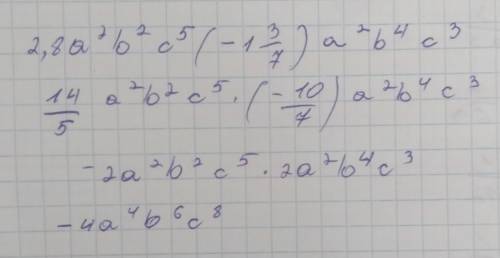 2,8a²b²c⁵(-1 3/7)a²b⁴c³
14/5 a²b²c⁵·(-10/7)a²b⁴c³
-2a²b²c⁵·2a²b⁴c³
-4a⁴b⁶c⁸